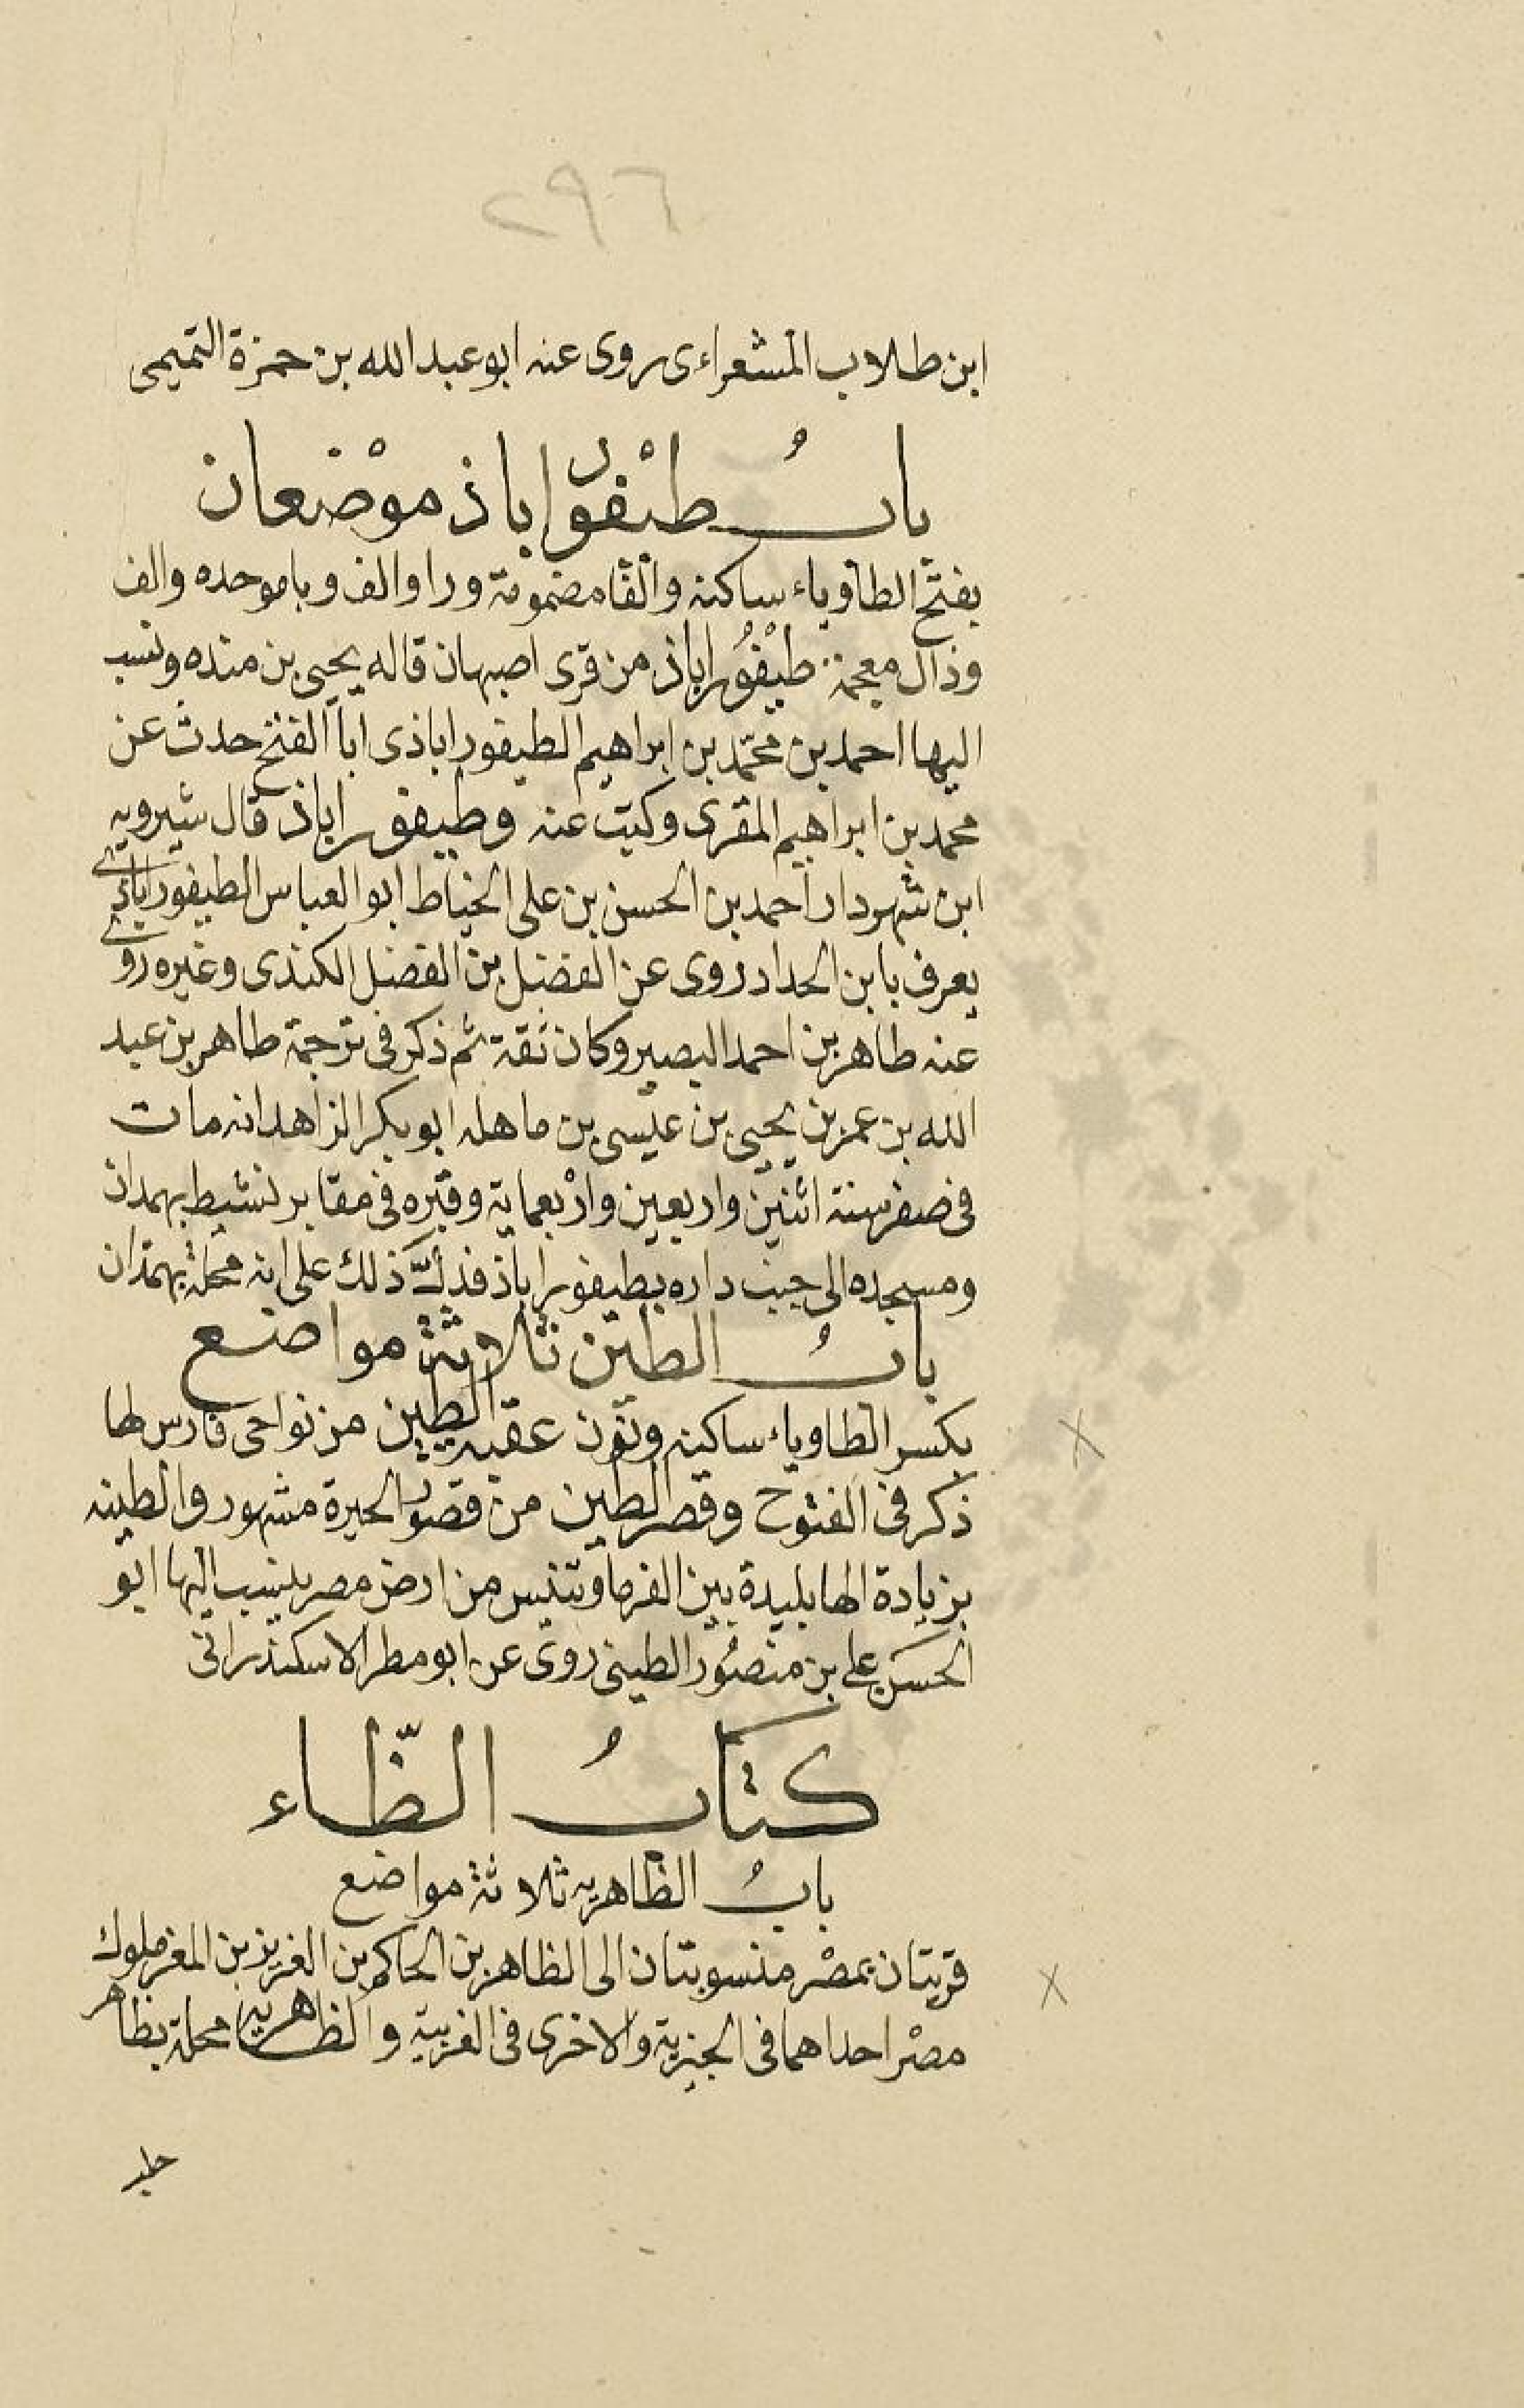 ٢٩٦
ابن طلاب المشغراءى روى عنه ابو عبد الله بن حمزة التميمى
بابُ طيْفوراباذ موْضعان
بفتح الطا وياء ساكنه والفا مضمومة ورا والف وبا موحده والف
وذال معجمة طيْفُوراباذ من قرى اصبهان قاله يحيى بن منده ونسب
اليها احمد بن محمّد بن ابراهيم الطيفوراباذى ابا الفتح حدث عن
محمد بن ابراهيم المقرى وكتبت عنه وطيفوراباذ قال شيرويه
ابن شهردار احمد بن الحسن بن على الخياط ابو العباس الطيفوراباذى
يعرف بابن الحداد روى عن الفضل بن الفضل الكندى وغيره روى
عنه طاهر بن احمد البصير وكان ثقة ثم ذكر فى ترجمة طاهر بن عبد
الله بن عمر بن يحيى بن عيسى بن ماهله ابو بكر الزاهد انه مات
فى صفر سنة اثنين واربعين وارْبعماية وقبره فى مقابر نشيط بهمدان
ومسجده الى جنب داره بطيفوراباذ فدلَّ ذلك على انه محلة بهمذان
بابُ الطين ثلاثة مواضع
بكسر الطا وياء ساكنه ونون عقبة الطين من نواحى فارس لها
ذكر فى الفتوح وقصر الطين من قصور الحيرة مشهور والطينه
بزيادة الها بليدة بين الفرما وتنيس من ارض مصر ينسب اليها ابو
الحسن على بن منصُور الطينى روى عن ابو مطر الاسكندرانى
كتابُ الظّاء
بابُ الظاهريه ثلاثة مواضع
قريتان بمصْر منسوبتان الى الظاهر بن الحاكم بن العزيز بن المعز ملوك
مصْر احداهما فى الجيزية والاخرى فى الغربية والظاهرية محلة بظاهر
حلب